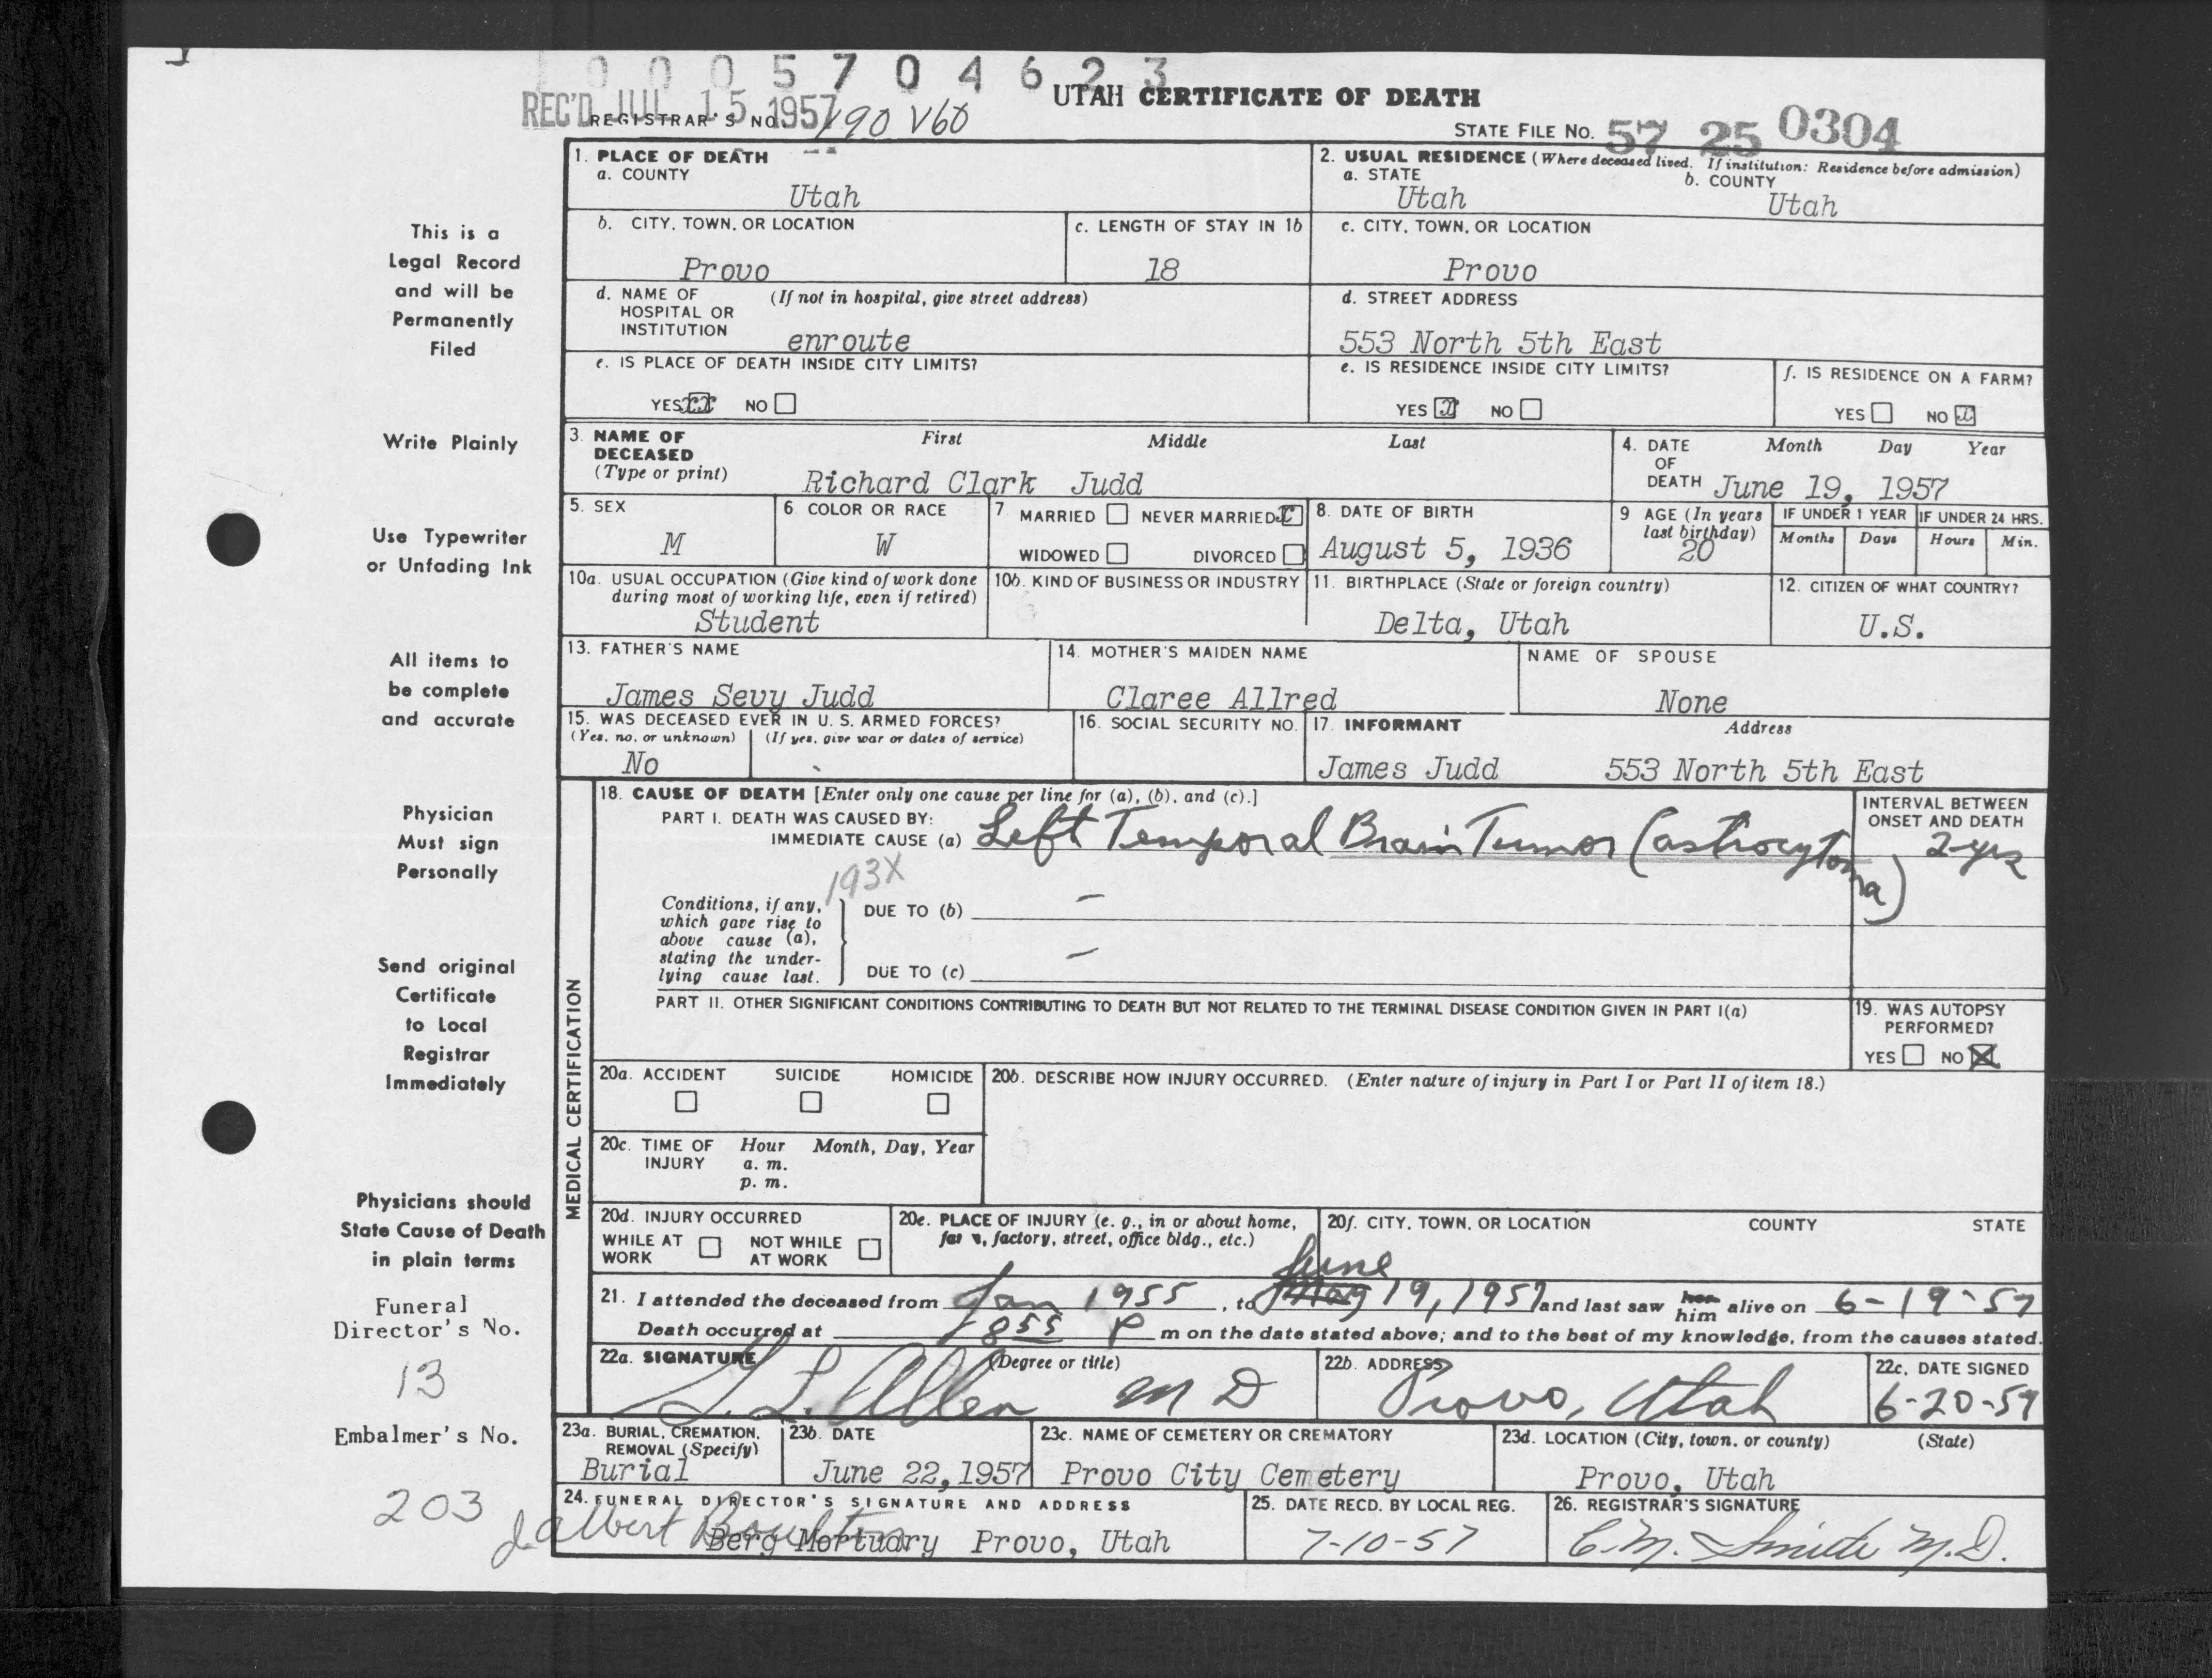 10005704623
REC'D JUL 15 1957
UTAH CERTIFICATE OF DEATH
REGISTRAR'S NO. 190 V60
STATE FILE NO. 57 25 0304
This is a
Legal Record
and will be
Permanently
Filed
Write Plainly
Use Typewriter
or Unfading Ink
All items to
be complete
and accurate
Physician
Must sign
Personally
Send original
Certificate
to Local
Registrar
Immediately
Physicians should
State Cause of Death
in plain terms
Funeral
Director's No.
13
Embalmer's No.
203
1. PLACE OF DEATH
a. COUNTY
Utah
2. USUAL RESIDENCE (Where deceased lived. If institution: Residence before admission)
a. STATE
Utah
b. COUNTY
Utah
b. CITY, TOWN, OR LOCATION
Provo
c. LENGTH OF STAY IN 1b
18
c. CITY, TOWN, OR LOCATION
Provo
d. NAME OF (If not in hospital, give street address)
HOSPITAL OR
INSTITUTION
enroute
d. STREET ADDRESS
553 North 5th East
e. IS PLACE OF DEATH INSIDE CITY LIMITS?
YES xx NO
e. IS RESIDENCE INSIDE CITY LIMITS?
YES x NO
f. IS RESIDENCE ON A FARM?
YES NO x
3. NAME OF DECEASED
(Type or print)
First Middle Last
Richard Clark Judd
4. DATE OF DEATH
Month Day Year
June 19, 1957
5. SEX
M
6 COLOR OR RACE
W
7 MARRIED NEVER MARRIED x
WIDOWED DIVORCED
8. DATE OF BIRTH
August 5, 1936
9 AGE (In years last birthday)
20
IF UNDER 1 YEAR
Months Days
IF UNDER 24 HRS.
Hours Min.
10a. USUAL OCCUPATION (Give kind of work done
during most of working life, even if retired)
Student
10b. KIND OF BUSINESS OR INDUSTRY
11. BIRTHPLACE (State or foreign country)
Delta, Utah
12. CITIZEN OF WHAT COUNTRY?
U.S.
13. FATHER'S NAME
James Sevy Judd
14. MOTHER'S MAIDEN NAME
Claree Allred
NAME OF SPOUSE
None
15. WAS DECEASED EVER IN U. S. ARMED FORCES?
(Yes, no, or unknown) (If yes, give war or dates of service)
No
16. SOCIAL SECURITY NO.
17. INFORMANT Address
James Judd 553 North 5th East
MEDICAL CERTIFICATION
18. CAUSE OF DEATH [Enter only one cause per line for (a), (b), and (c).]
PART I. DEATH WAS CAUSED BY:
IMMEDIATE CAUSE (a) Left Temporal Brain Tumor (astrocytoma)
INTERVAL BETWEEN
ONSET AND DEATH
2 yrs
193X
Conditions, if any,
which gave rise to
above cause (a),
stating the under-
lying cause last.
DUE TO (b) –
DUE TO (c) –
PART II. OTHER SIGNIFICANT CONDITIONS CONTRIBUTING TO DEATH BUT NOT RELATED TO THE TERMINAL DISEASE CONDITION GIVEN IN PART I(a)
19. WAS AUTOPSY
PERFORMED?
YES NO X
20a. ACCIDENT SUICIDE HOMICIDE
20b. DESCRIBE HOW INJURY OCCURRED. (Enter nature of injury in Part I or Part II of item 18.)
20c. TIME OF INJURY
Hour Month, Day, Year
a. m.
p. m.
20d. INJURY OCCURRED
WHILE AT WORK NOT WHILE AT WORK
20e. PLACE OF INJURY (e. g., in or about home,
farm, factory, street, office bldg., etc.)
20f. CITY, TOWN, OR LOCATION COUNTY STATE
June
21. I attended the deceased from Jan 1955, to May 19, 1957 and last saw her him alive on 6-19-57
Death occurred at 8 55 P m on the date stated above; and to the best of my knowledge, from the causes stated.
22a. SIGNATURE (Degree or title)
L. L. Allen M D
22b. ADDRESS
Provo, Utah
22c. DATE SIGNED
6-20-57
23a. BURIAL, CREMATION,
REMOVAL (Specify)
Burial
23b. DATE
June 22, 1957
23c. NAME OF CEMETERY OR CREMATORY
Provo City Cemetery
23d. LOCATION (City, town, or county) (State)
Provo, Utah
24. FUNERAL DIRECTOR'S SIGNATURE AND ADDRESS
Albert Boulton
Berg Mortuary Provo, Utah
25. DATE RECD. BY LOCAL REG.
7-10-57
26. REGISTRAR'S SIGNATURE
C. M. Smith M.D.